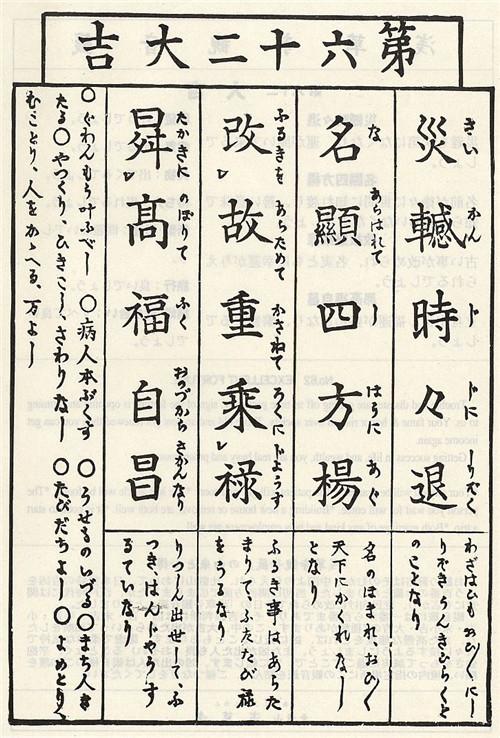 第六十二大吉
災轗時々退
さいかんじゞにしりぞく
名顯四方楊
なあらはれてしはうにあぐ
改レ故重乗レ禄
ふるきをあらためてかさねてろくにじようず
昇レ髙福自昌
たかきにのぼりてふくおのづからさかんなり
わざはひもおひ〱にし
りぞきうんきひらくと
のことなり
名のほまれ、おひ〱
天下にかくれなし
となり
ふるき事はあらた
まりてふたたび禄
をうるなり
りつしん出世して、ふ
つきはんじやうす
るていなり
○ぐわんもう叶ふべし ○病人本ぶくす ○うせものいづる○まち人き
たる○やつくり、ひきこしさわりなし ○たびだちよし ○よめとり、
むことり、人をかゝへる、万よし